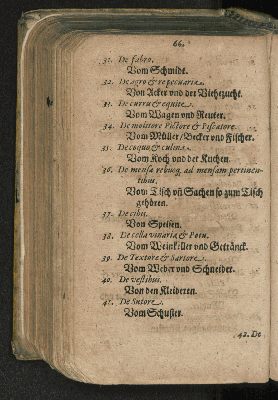 66.
31. De fabro.
Vom Schmidt.
32. De agro & re pecuaria.
Von Acker und der Viehezucht.
33. De curru & equite.
Vom Wagen und Reuter.
34. De molitore Pistore & Piscatore.
Vom Müller/Becker und Fischer.
35. De coquo & culina.
Vom Koch und der Kuchen.
36. De mensa rebusq; ad mensam pertinen-
tibus.
Vom Tisch uñ Sachen so zum Tisch
gehören.
37. De cibis.
Von Speisen.
38. De cella vinaria & Potu.
Vom Weinkeller und Getränck.
39. De Textore & Sartore.
Vom Weber und Schneider.
40. De vestibus.
Von den Kleideren.
41. De Sutore.
Vom Schuster.
42. De